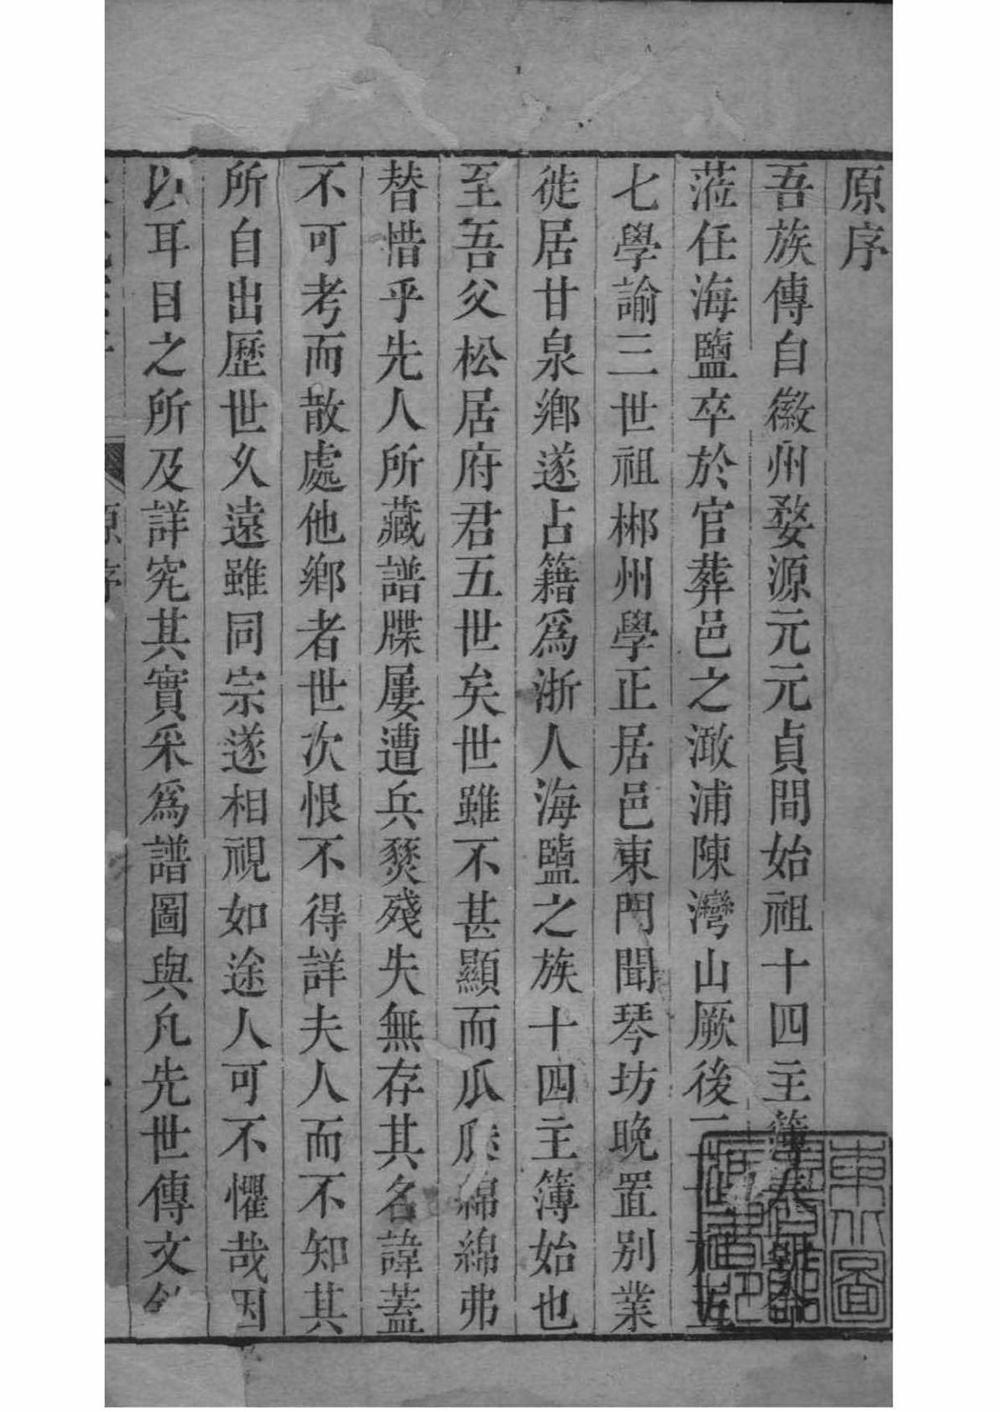 原序
吾族傳自徽州婺源元元貞間始祖十四主簿
蒞任海鹽卒於官葬邑之澉浦陳灣山厥後二世祖五
七學諭三世祖郴州學正居邑東門聞琴坊晚置別業
徙居甘泉鄉遂占籍爲浙人海鹽之族十四主簿始也
至吾父松居府君五世矣世雖不甚顯而瓜瓞綿綿弗
替惜乎先人所藏譜牒屢遭兵燹殘失無存其名諱蓋
不可考而散處他鄉者世次恨不得詳夫人而不知其
所自出歷世久遠雖同宗遂相視如途人可不懼哉因
以耳目之所及詳究其實采爲譜圖與凡先世傳文
原序